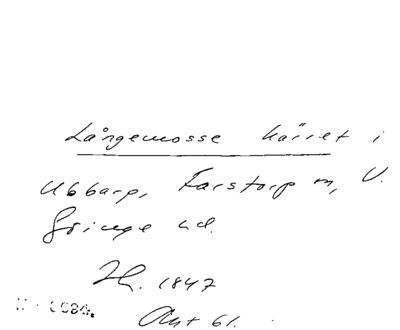 Långemosse kärret i
Ubbarp, Farstorp m, V.
Göinge hd.
Jh. 1847
Akt 61.